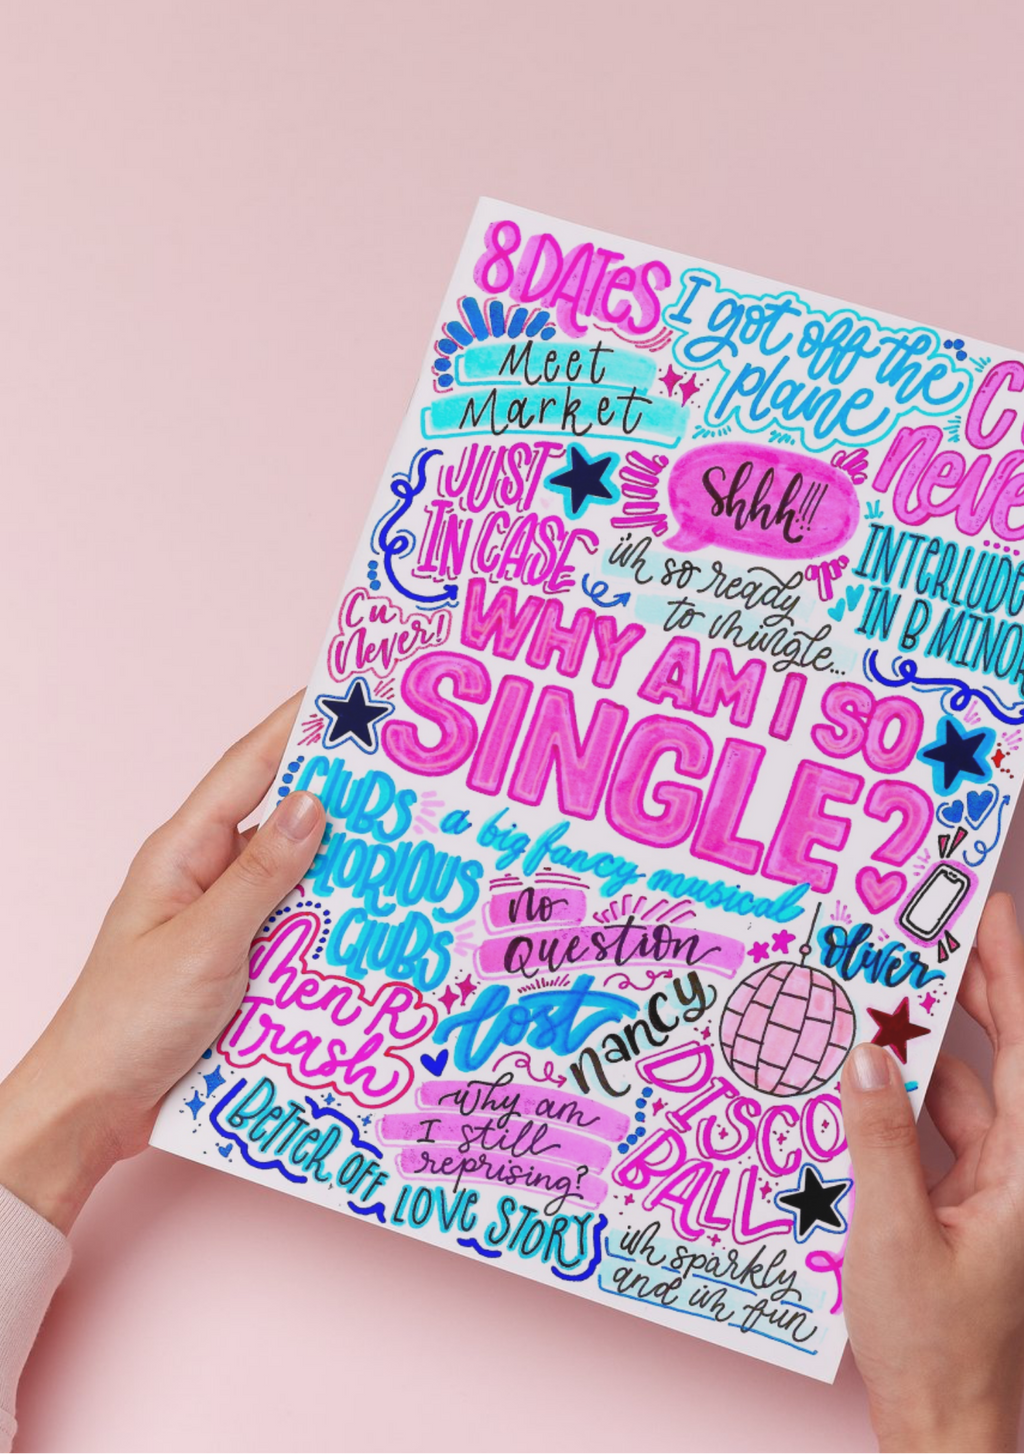 8 DATES
I got off the
plane
Meet
Market
C
never
JUST
IN CASE
shhh!!!
i'm so ready
to mingle...
INTERLUDE
IN B MINOR
C u
Never!
WHY AM I SO
SINGLE?
CLUBS
GLORIOUS
CLUBS
a big fancy musical
No
Question
oliver
Men R
Trash
lost
nancy
DISCO
BALL
BETTER OFF
why am
I still
reprising?
LOVE STORY
i'm sparkly
and i'm fun